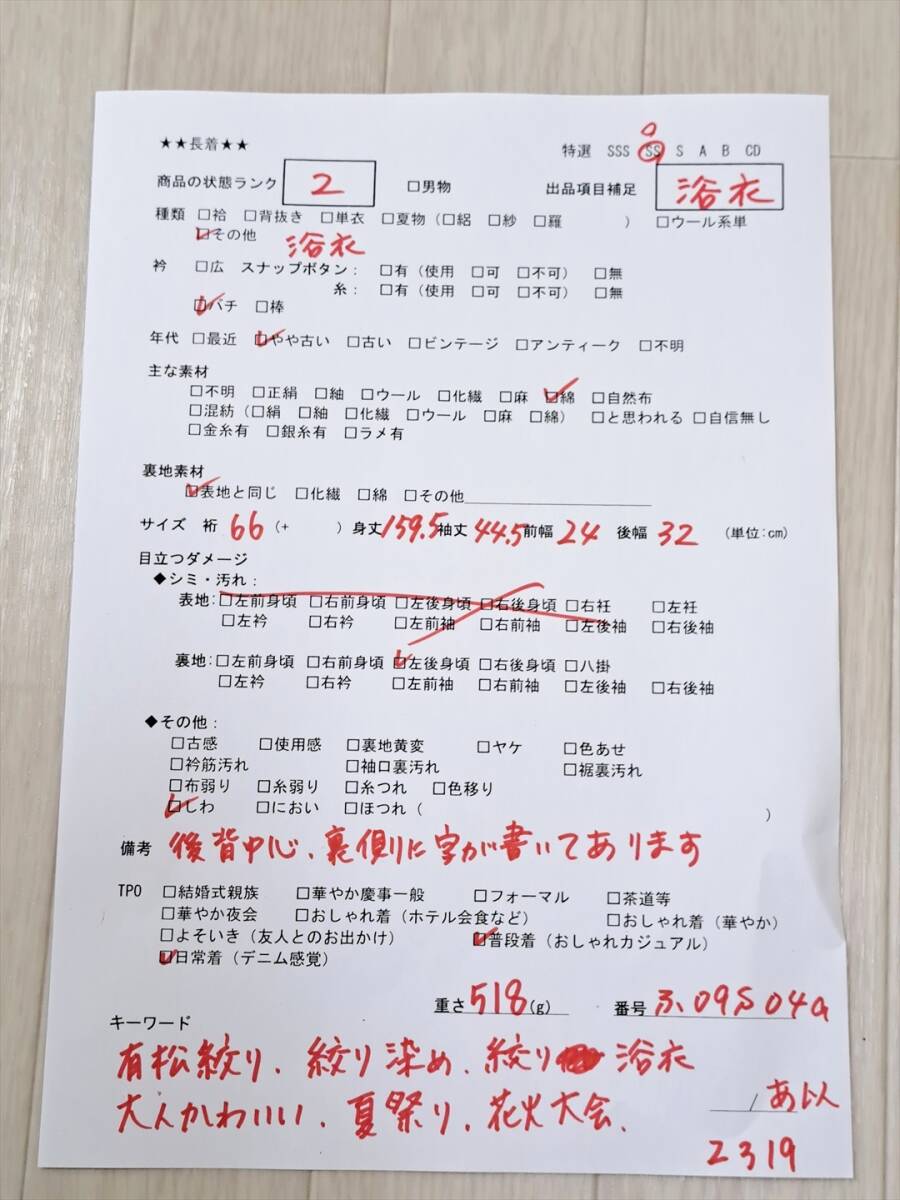 ★★長着★★
特選 SSS SS S A B CD
商品の状態ランク 2 □男物 出品項目補足 浴衣
種類 □袷 □背抜き □単衣 □夏物(□絽 □紗 □羅 ) □ウール系単
☑その他 浴衣
衿 □広 スナップボタン: □有(使用 □可 □不可) □無
糸: □有(使用 □可 □不可) □無
☑バチ □棒
年代 □最近 ☑やや古い □古い □ビンテージ □アンティーク □不明
主な素材
□不明 □正絹 □紬 □ウール □化繊 □麻 ☑綿 □自然布
□混紡(□絹 □紬 □化繊 □ウール □麻 □綿) □と思われる □自信無し
□金糸有 □銀糸有 □ラメ有
裏地素材
☑表地と同じ □化繊 □綿 □その他
サイズ 裄 66 (+ ) 身丈 159.5 袖丈 44.5 前幅 24 後幅 32 (単位:cm)
目立つダメージ
◆シミ・汚れ:
表地:□左前身頃 □右前身頃 □左後身頃 □右後身頃 □右衽 □左衽
□左衿 □右衿 □左前袖 □右前袖 □左後袖 □右後袖
裏地:□左前身頃 □右前身頃 ☑左後身頃 □右後身頃 □八掛
□左衿 □右衿 □左前袖 □右前袖 □左後袖 □右後袖
◆その他:
□古感 □使用感 □裏地黄変 □ヤケ □色あせ
□衿筋汚れ □袖口裏汚れ □裾裏汚れ
□布弱り □糸弱り □糸つれ □色移り
☑しわ □におい □ほつれ( )
備考 後背中心、裏側に字が書いてあります
TPO □結婚式親族 □華やか慶事一般 □フォーマル □茶道等
□華やか夜会 □おしゃれ着(ホテル会食など) □おしゃれ着(華やか)
□よそいき(友人とのお出かけ) ☑普段着(おしゃれカジュアル)
☑日常着(デニム感覚)
重さ 518 (g) 番号
キーワード
有松絞り、絞り染め、絞り 浴衣
大人かわいい、夏祭り、花火大会、
2319